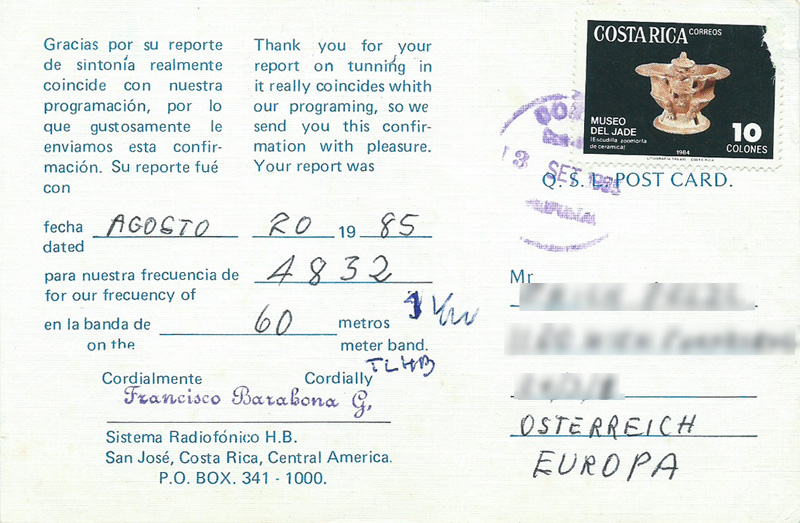 Gracias por su reporte
de sintonía realmente
coincide con nuestra
programación, por lo
que gustosamente le
enviamos esta confir-
mación. Su reporte fué
con
Thank you for your
report on tunning in
it really coincides whith
our programing, so we
send you this confir-
mation with pleasure.
Your report was
fecha AGOSTO 20 19 85
dated
para nuestra frecuencia de 4832
for our frecuency of
en la banda de 60 metros
on the meter band.
TLHB
Cordialmente Cordially
Francisco Barahona G,
Sistema Radiofónico H.B.
San José, Costa Rica, Central America.
P.O. BOX. 341 - 1000.
COSTA RICA CORREOS
MUSEO
DEL JADE
(Escudilla zoomorfa
de cerámica)
10
COLONES
1984
3 SET
Q. S. L. POST CARD.
Mr
OSTERREICH
EUROPA